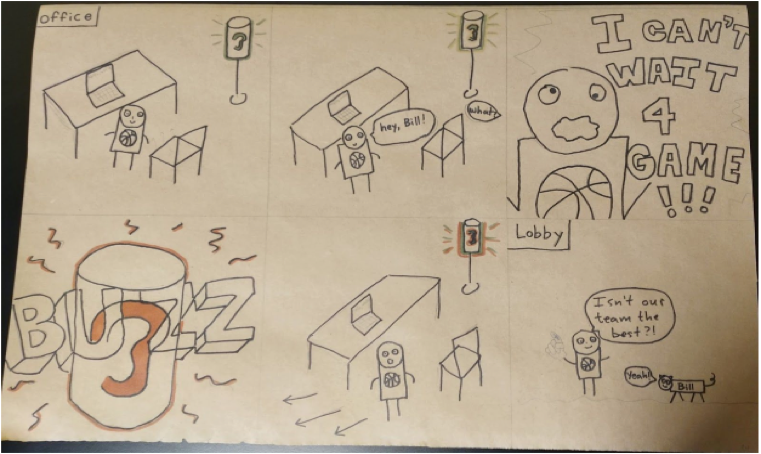 Office
3
3
hey, Bill!
what
I CAN'T
WAIT
4
GAME
!!!
BUZZ
3
3
Lobby
Isn't our
team the
best?!
Yeah!
Bill